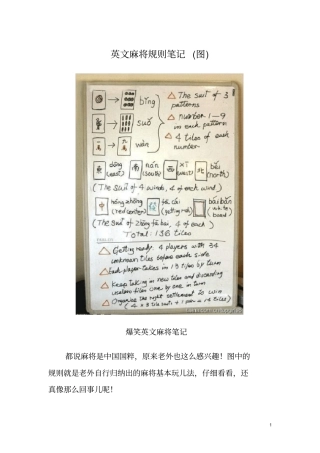 英文麻将规则笔记 (图)
bǐng
The suit of 3
patterns
suǒ
Number 1-9
in each pattern
4 tiles of each
number
wàn
dōng
(east)
nán
(south)
xī
west
běi
(north)
(The suit of 4 winds, 4 of each wind)
hóng zhōng
(red center)
fā cái
(getting rich)
bái bǎn
(The suit of Zhōng fā bái, 4 of each)
Total: 136 tiles
Getting ready. 4 players with 34
unknown tiles before each side
Each player takes in 13 tiles by turn
Taking in new tiles and discarding
useless tiles one by one in turn
Organise the right settlement to win
爆笑英文麻将笔记
都说麻将是中国国粹，原来老外也这么感兴趣！图中的
规则就是老外自行归纳出的麻将基本玩儿法，仔细看看，还
真像那么回事儿呢！
1